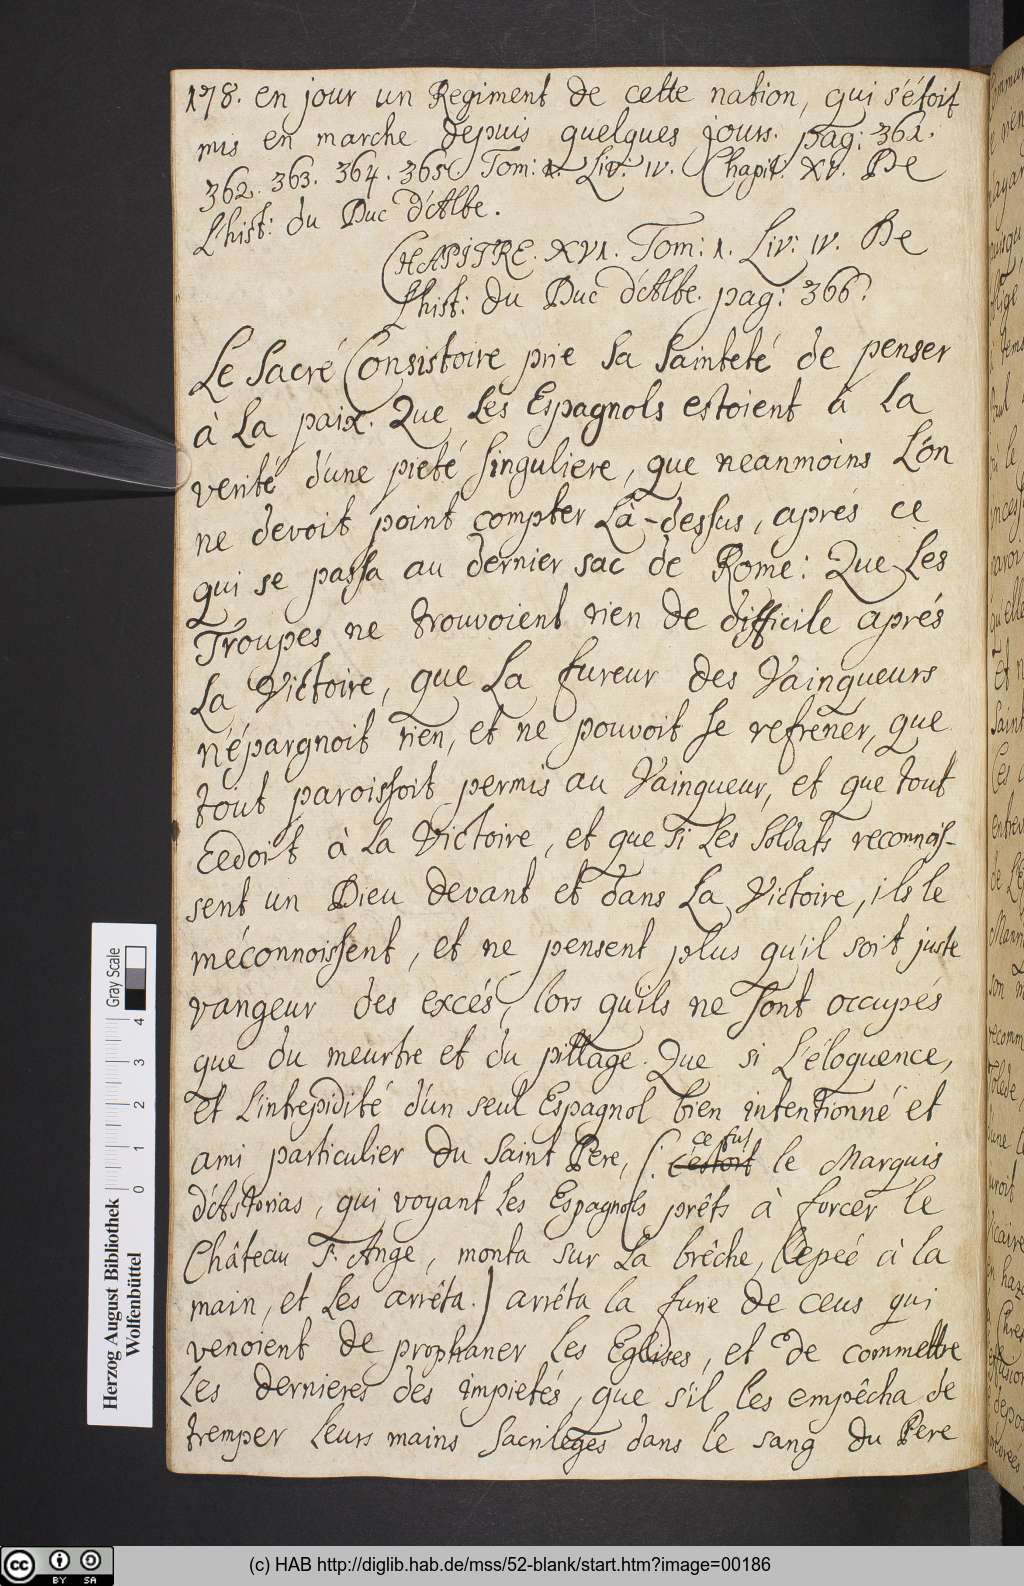 178. en jour un Regiment de cette nation, qui s'étoit
mis en marche depuis quelques jours. pag: 361.
362. 363. 364. 365. Tom: 1. Liv: IV. Chapit: XV. De
L'hist: du Duc d'Albe.
CHAPITRE. XVI. Tom: 1. Liv: IV. De
L'hist: du Duc d'Albe. pag: 366.
Le Sacré Consistoire prie Sa Sainteté de penser
à La paix. Que Les Espagnols estoient à La
verité d'une pieté singuliere, que neanmoins L'on
ne devoit point compter Là-dessus, aprés ce
qui se passa au dernier sac de Rome: Que Les
Troupes ne trouvoient rien de difficile aprés
La Victoire, que La fureur des Vainqueurs
n'épargnoit rien, et ne pouvoit se refrener, que
tout paroissoit permis au Vainqueur, et que tout
Cedoit à La Victoire, et que si Les Soldats reconnois-
sent un Dieu devant et dans La Victoire, ils le
méconnoissent, et ne pensent plus qu'il soit juste
vangeur des excés, lors qu'ils ne sont occupés
que du meurtre et du pillage. Que si L'éloquence,
et L'intrepidité d'un seul Espagnol bien intentionné et
ami particulier du Saint Pere, (: ce fut
Cestoit le Marquis
d'Astorias, qui voyant Les Espagnols prêts à forcer le
Château St. Ange, monta sur La brêche, L'epeé à la
main, et Les arrêta.) arrêta la furie de ceus qui
venoient de prophaner les Eglises, et de commettre
Les dernieres des impietés, que s'il les empêcha de
tremper Leurs mains Sacrileges dans le sang du Pere
Gray Scale
0 1 2 3 4
Herzog August Bibliothek
Wolfenbüttel
cc BY SA
(c) HAB http://diglib.hab.de/mss/52-blank/start.htm?image=00186